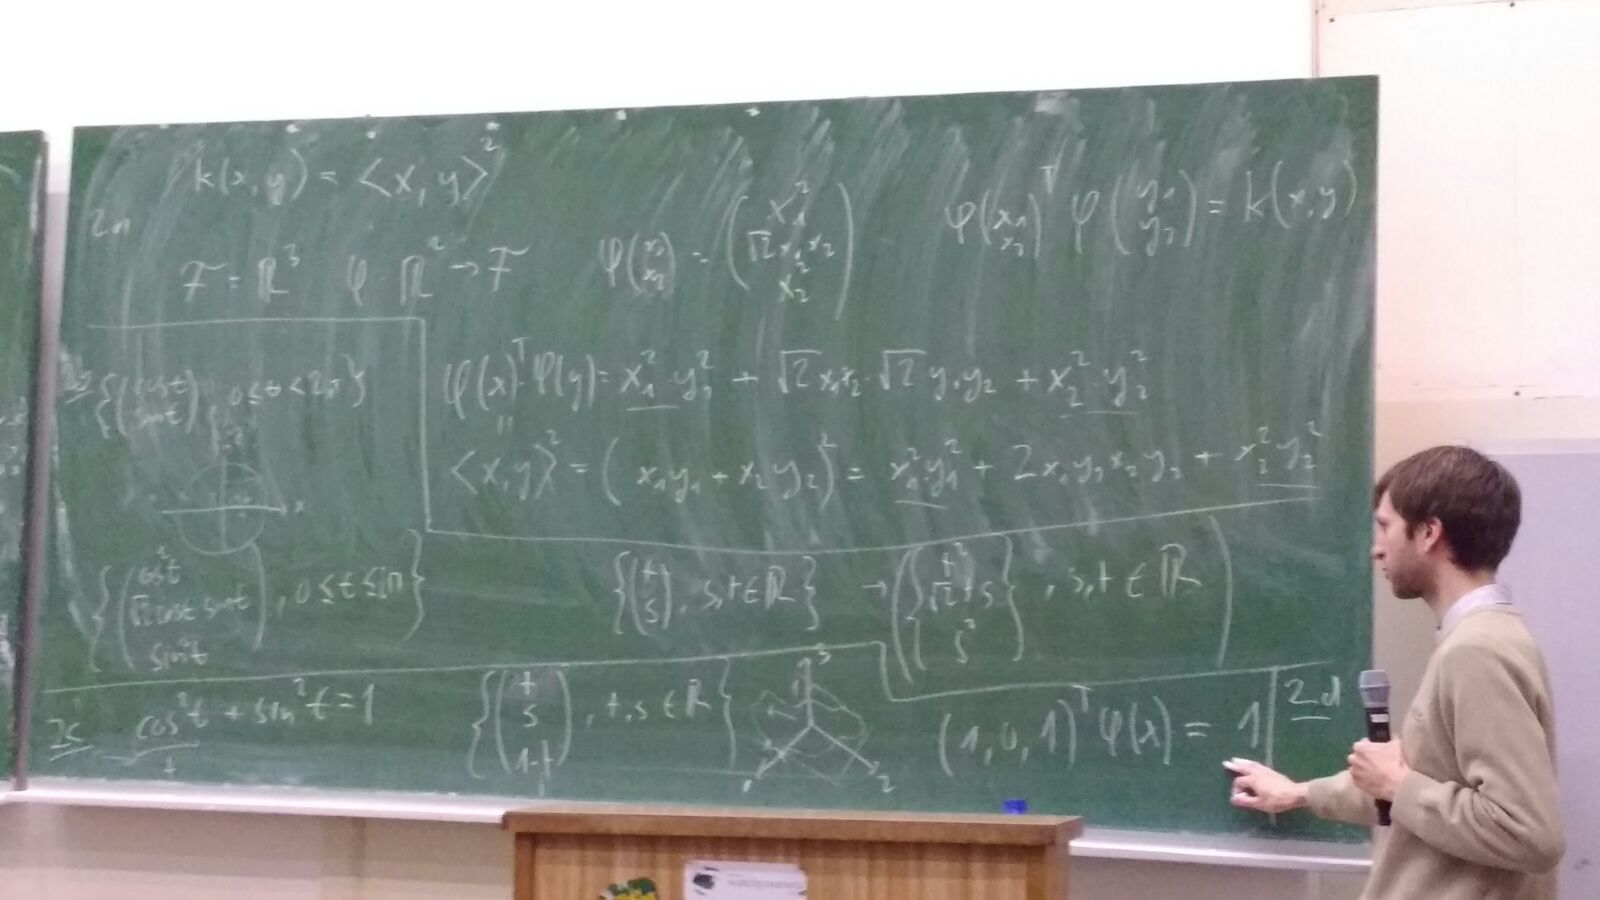 k(x,y) = <x,y>²
2a
F = ℝ³ φ: ℝ² → F
φ(x₁ x₂) = (x₁² √2 x₁x₂ x₂²)
φ(x₁ x₂)ᵀ φ(y₁ y₂) = k(x,y)
φ(x)ᵀ·φ(y) = x₁²·y₁² + √2 x₁x₂·√2 y₁y₂ + x₂²·y₂²
<x,y>² = (x₁y₁ + x₂y₂)² = x₁²·y₁² + 2x₁y₁x₂y₂ + x₂²y₂²
{(cos t sin t), 0 ≤ t < 2π}
x
{(cos²t √2 cos t sin t sin²t), 0 ≤ t ≤
{(t s), s,t ∈ ℝ} → {(t² √2 ts s²), s,t ∈ ℝ}
2c cos²t + sin²t = 1
t
{(t s 1-t), t,s ∈ ℝ}
3
1 2
(1,0,1)ᵀ φ(x) = 1
2d